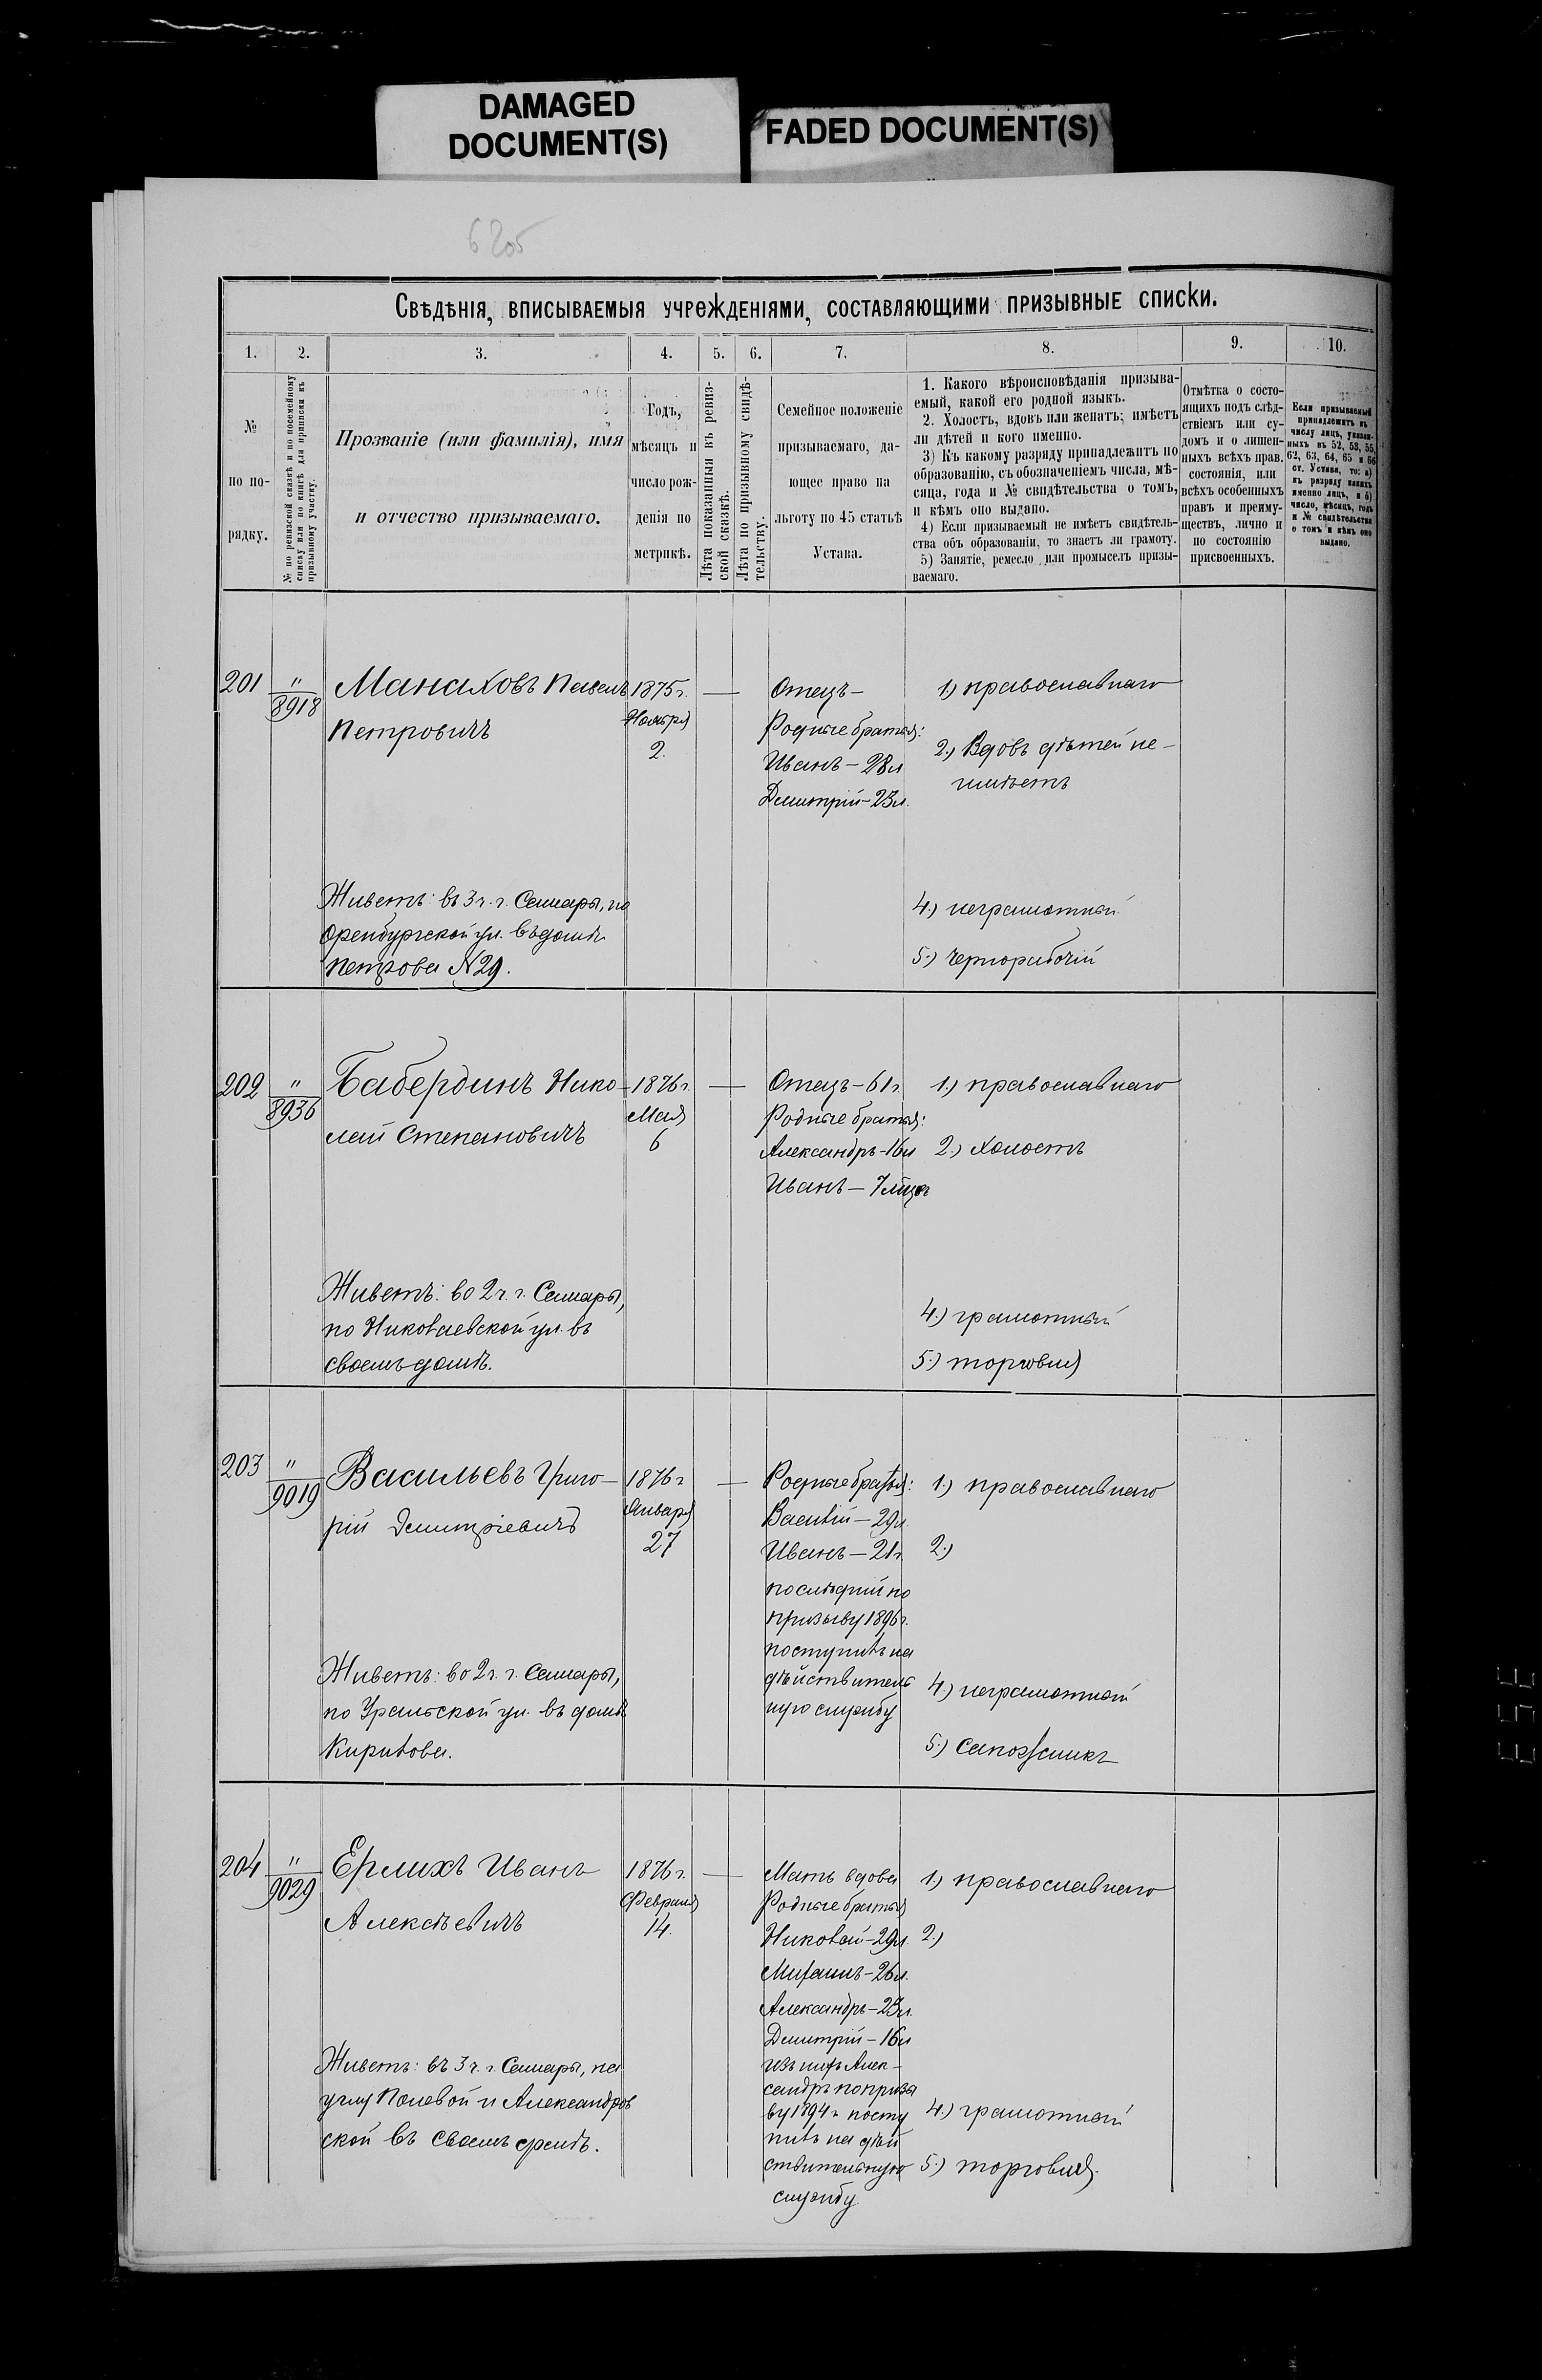 DAMAGED
DOCUMENT(S)
FADED DOCUMENT(S)
6 205
Свѣдѣнія, вписываемыя учрежденіями, составляющими призывные списки.
1. 2. 3. 4. 5. 6. 7. 8. 9. 10.
№
по по-
рядку.
№ по ревизской сказкѣ и по посемейному
списку или по книгѣ для приписки къ
призывному участку.
Прозваніе (или фамилія), имя
и отчество призываемаго.
Годъ,
мѣсяцъ и
число рож-
денія по
метрикѣ.
Лѣта показанныя въ ревиз-
ской сказкѣ.
Лѣта по призывному свидѣ-
тельству.
Семейное положеніе
призываемаго, да-
ющее право на
льготу по 45 статьѣ
Устава.
1. Какого вѣроисповѣданія призыва-
емый, какой его родной языкъ.
2. Холостъ, вдовъ или женатъ; имѣетъ
ли дѣтей и кого именно.
3) Къ какому разряду принадлежитъ по
образованію, съ обозначеніемъ числа, мѣ-
сяца, года и № свидѣтельства о томъ,
и кѣмъ оно выдано.
4) Если призываемый не имѣетъ свидѣтель-
ства объ образованіи, то знаетъ ли грамоту.
5) Занятіе, ремесло или промыселъ призы-
ваемаго.
Отмѣтка о состо-
ящихъ подъ слѣд-
ствіемъ или су-
домъ и о лишен-
ныхъ всѣхъ прав.
состоянія, или
всѣхъ особенныхъ
правъ и преиму-
ществъ, лично и
по состоянію
присвоенныхъ.
Если призываемый
принадлежитъ къ
числу лицъ, указан-
ныхъ въ 52, 53, 55,
62, 63, 64, 65 и 66
ст. Устава, то: а)
къ разряду какихъ
именно лицъ, и б)
число, мѣсяцъ, годъ
и № свидѣтельства
о томъ и кѣмъ оно
выдано.
201
"
8918
Манаховъ Павелъ
Петровичъ
Живетъ: въ 3 ч. г. Самары, по
Оренбургской ул. въ домѣ
Петрова № 29.
1875 г.
Ноября
2.
—
Отецъ —
Родные братья:
Иванъ — 28 л
Дмитрій — 23 л.
1.) православнаго
2.) Вдовъ дѣтей не-
имѣетъ
4.) неграмотный
5.) чернорабочій
202
"
8936
Бабердинъ Нико-
лай Степановичъ
Живетъ: во 2 ч. г. Самары,
по Николаевской ул. въ
своемъ домѣ.
1876 г.
Мая
6
—
Отецъ — 61 г
Родные братья:
Александръ — 16 л
Иванъ — 7 мѣсяц
1.) православнаго
2.) холостъ
4.) грамотный
5.) торговля
203
"
9019
Васильевъ Григо-
рій Дмитріевичъ
Живетъ: во 2 ч. г. Самары,
по Уральской ул. въ домѣ
Кирилова.
1876 г
Января
27
—
Родные братья:
Василій — 29 л.
Иванъ — 21 г.
послѣдній по
призыву 1896 г.
поступилъ на
дѣйствитель
ную службу
1.) православнаго
2.)
4.) неграмотный
5.) сапожникъ
204
"
9029
Ерлихъ Иванъ
Алексѣевичъ
Живетъ: въ 3 ч. г. Самары, на
углу Полевой и Александров
ской въ своемъ домѣ.
1876 г.
Февраля
14.
—
Мать вдова
Родные братья
Николай — 29 л.
Михаилъ — 26 л.
Александръ — 23 л.
Дмитрій — 16 л
изъ нихъ Алек-
сандръ по призы
ву 1894 г. посту
пилъ на дѣй
ствительную
службу.
1.) православнаго
2.)
4.) грамотный
5.) торговля.